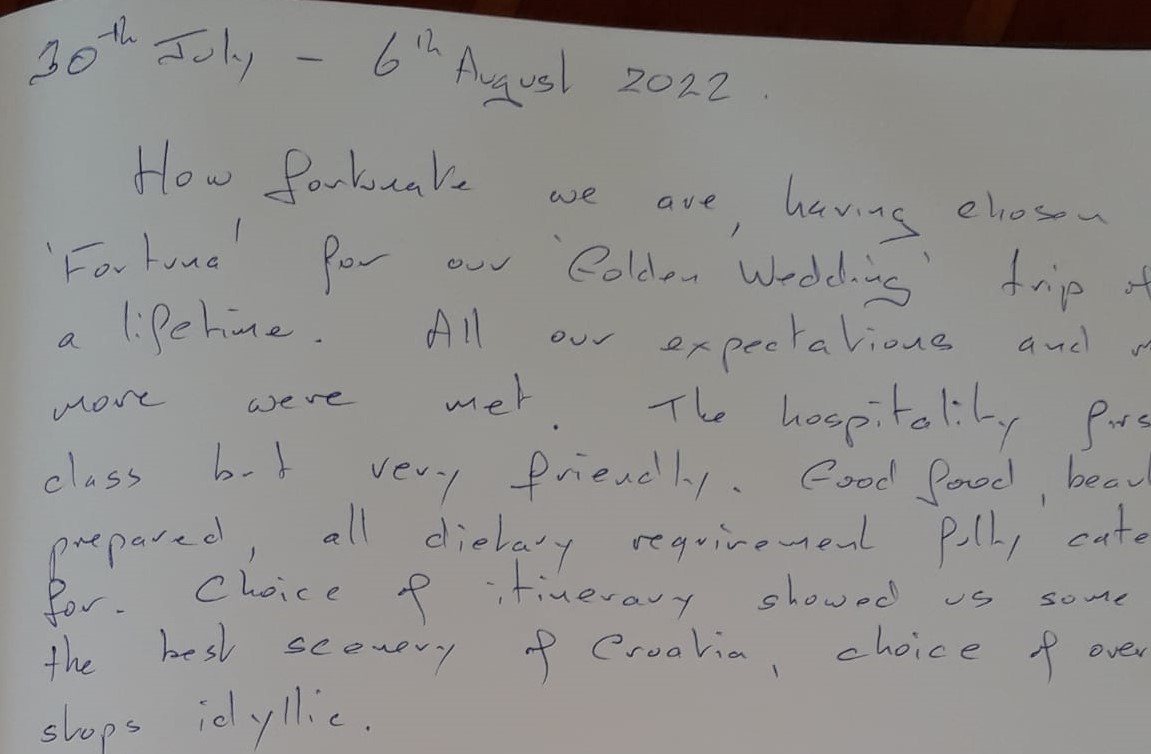 30th July - 6th August 2022.
How fortunate we are, having chosen
'Fortuna' for our 'Golden Wedding' trip of
a lifetime. All our expectations and
more were met. The hospitality
class but very friendly. Good food,
prepared, all dietary requirement fully cate
for. Choice of itinerary showed us some
the best scenery of Croatia, choice of over
stops idyllic.